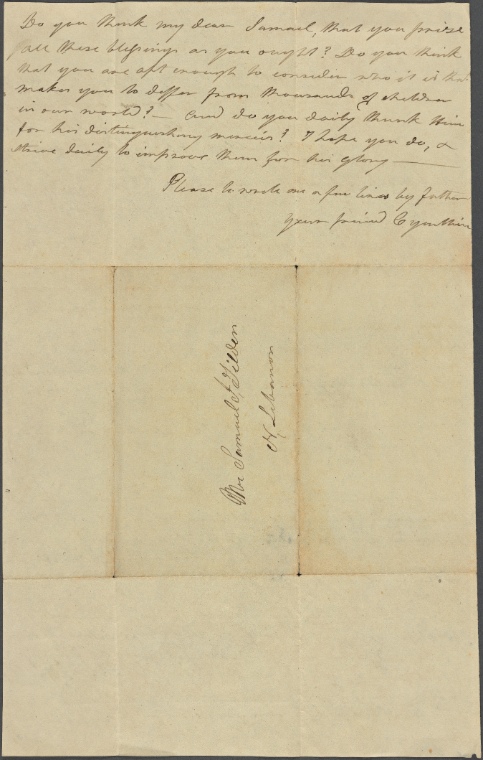 Do you think my dear Samuel, that you prize
all these blessings as you ought? Do you think
that you are oft enough to consider who it is that
makes you to differ from thousands of children
in our world? — and do you daily thank Him
for his distinguishing mercies? I hope you do, &
strive daily to improve them for his glory —
Please to write me a few lines by father
your friend Cynthia
Mr Samuel J Tilden
N Lebanon